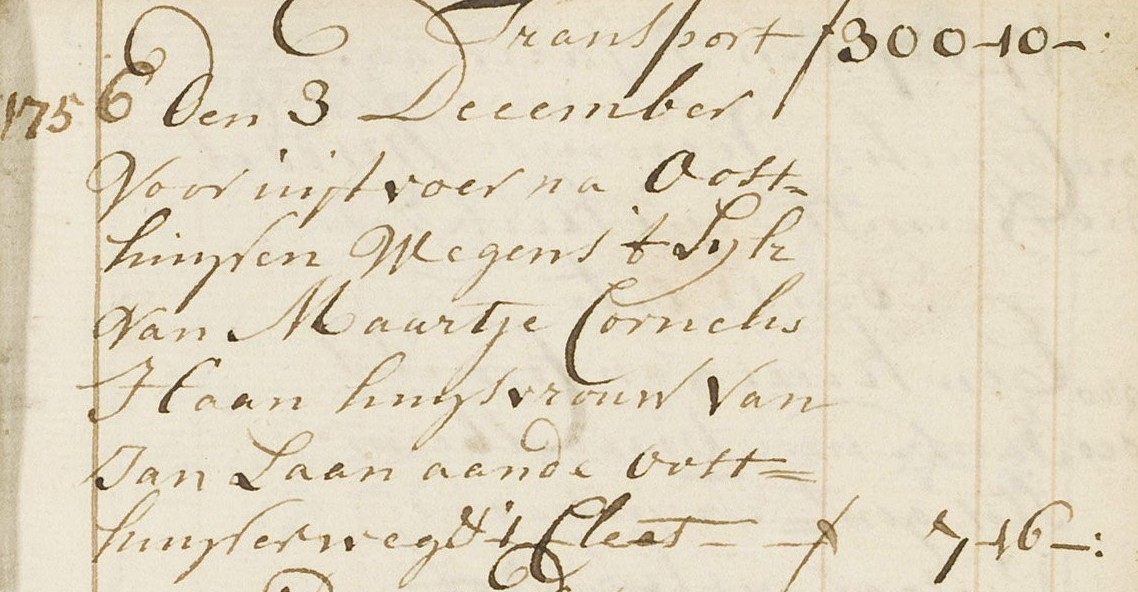 Transport f 300-10-
1756 Den 3 December
Voor uijtvoer na Oost-
huijsen Wegens 't Lyk
van Maartje Cornelis
Haan huijsvrouw van
Jan Laan aande Oost=
huijserweg & 't Cleet - f 7-16-: